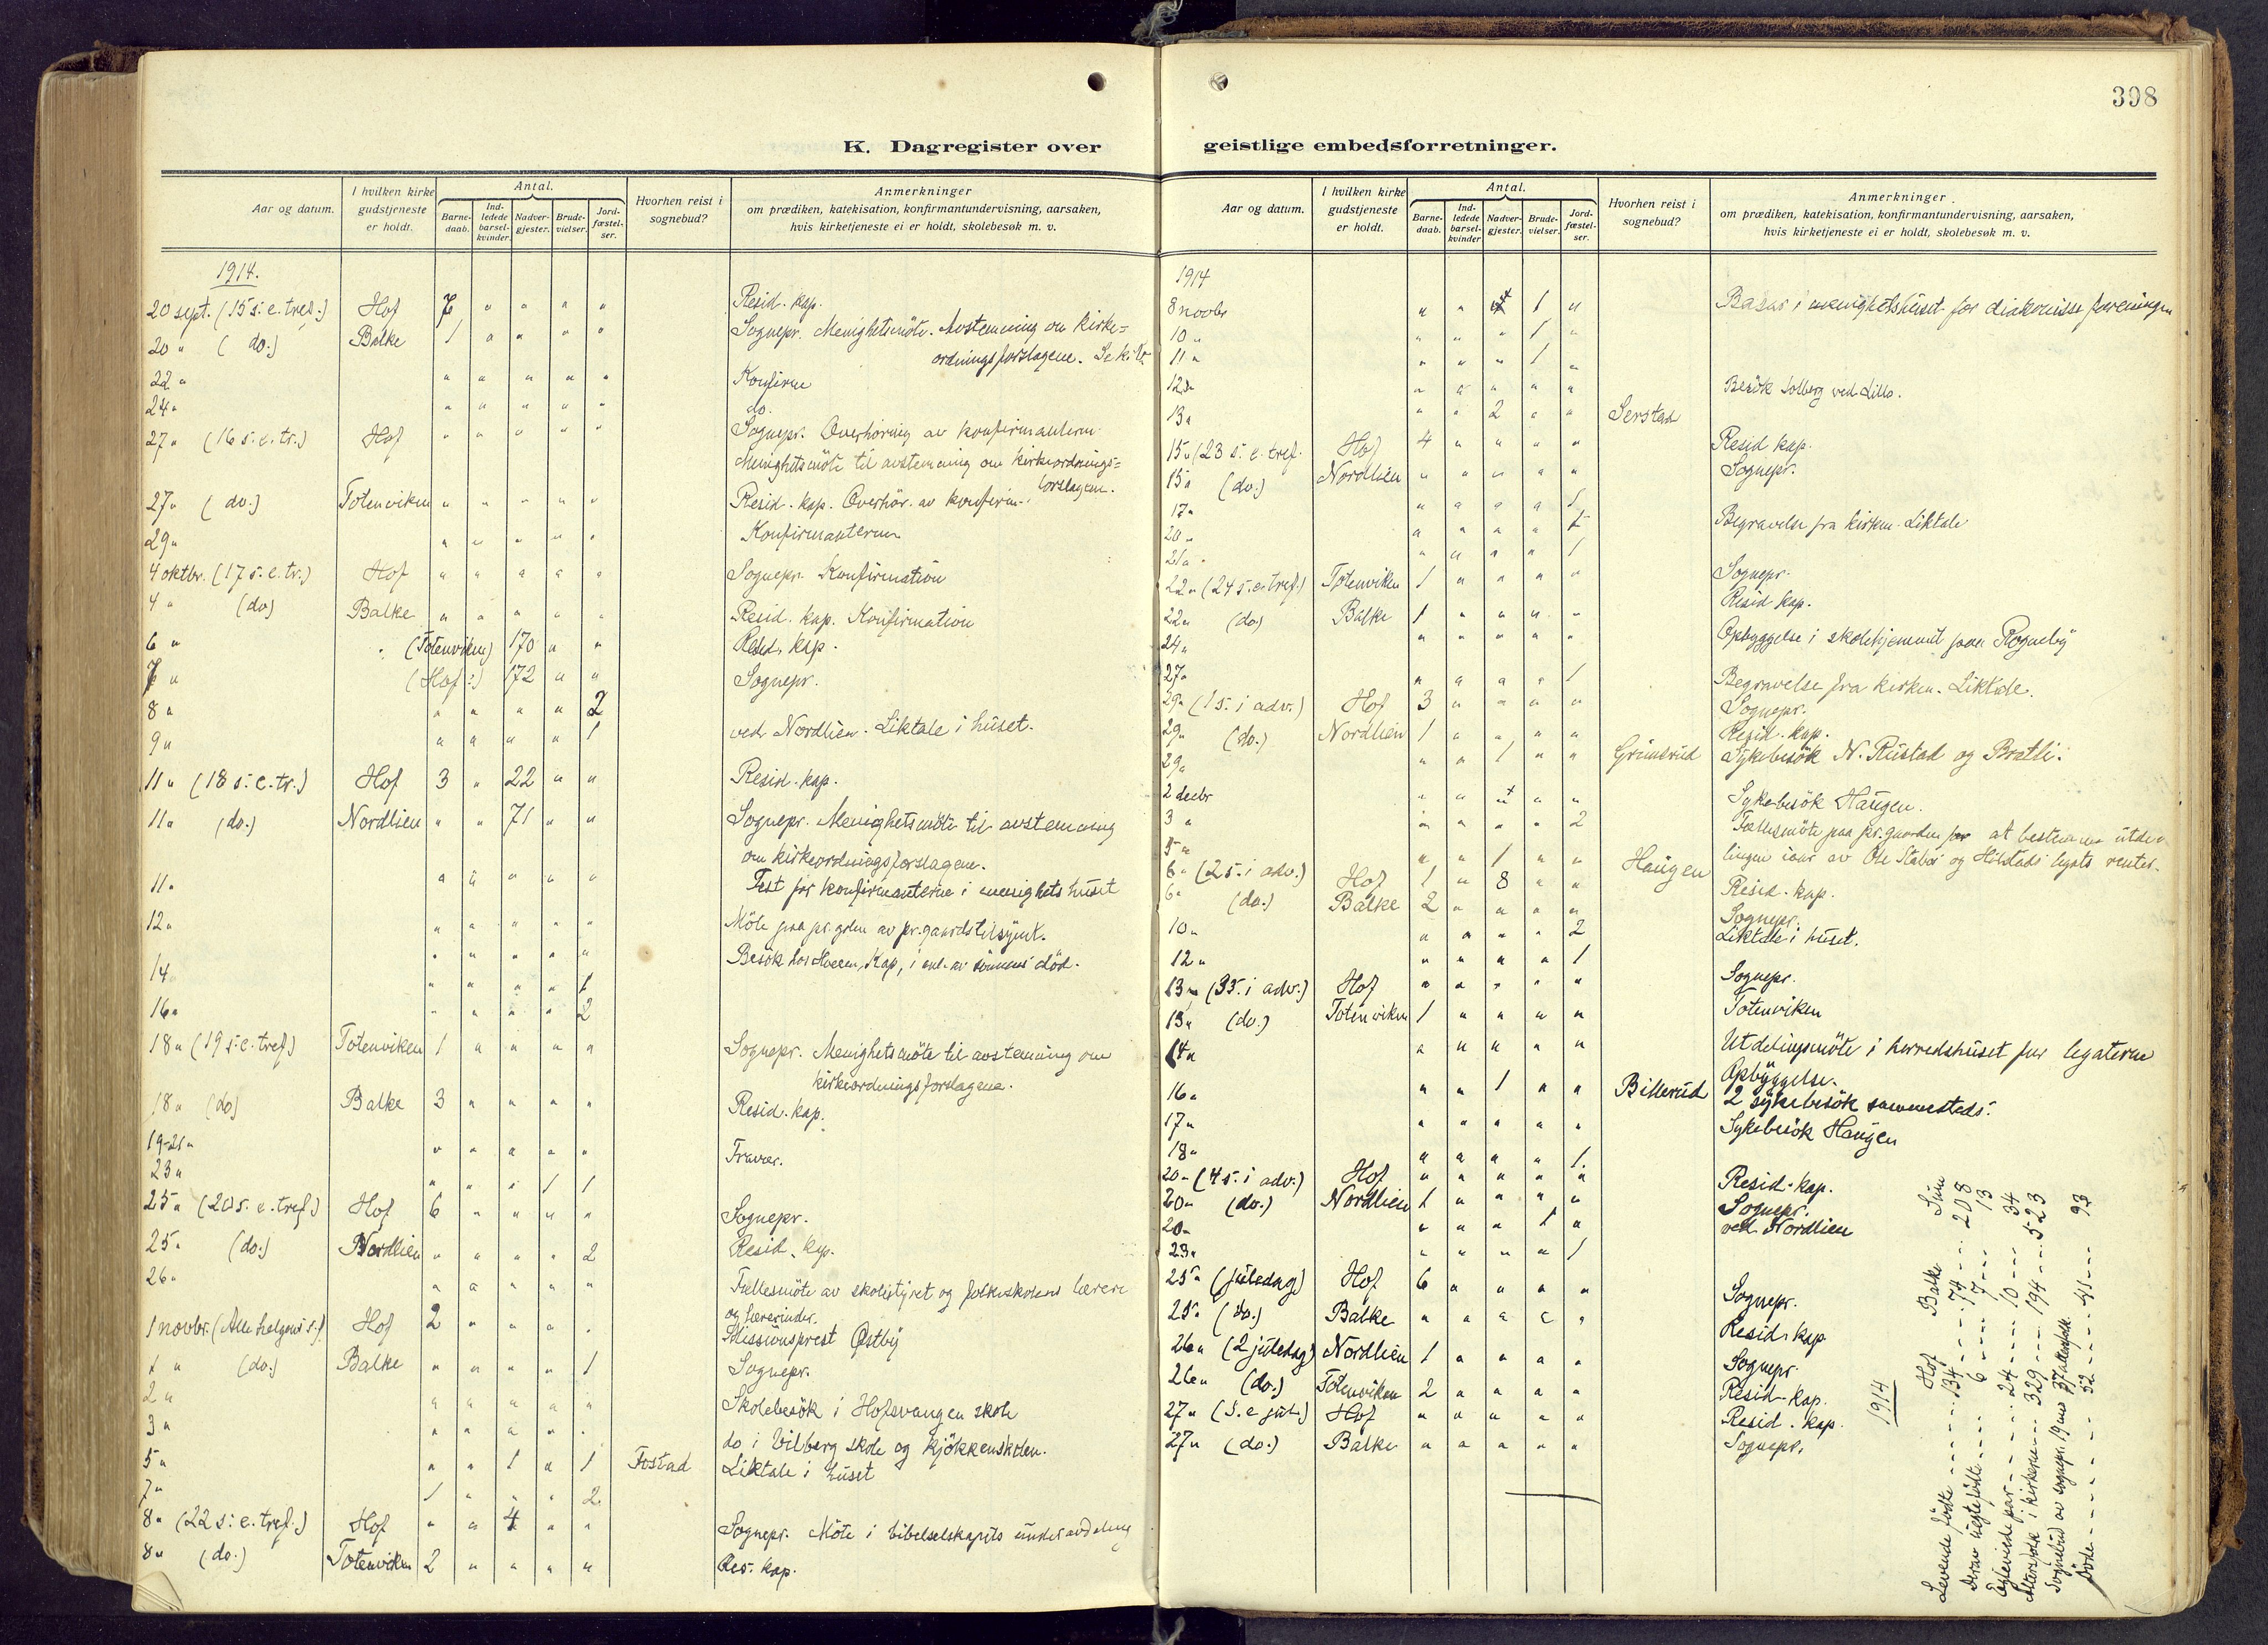 398
K. Dagregister over geistlige embedsforretninger.
Aar og datum.
I hvilken kirke gudstjeneste er holdt.
Antal.
Barne-daab.
Ind-ledede barsel-kvinder.
Nadver-gjester.
Brude-vielser.
Jord-fæstel-ser.
Hvorhen reist i sognebud?
Anmerkninger
om prædiken, katekisation, konfirmantundervisning, aarsaken,
hvis kirketjeneste ei er holdt, skolebesøk m. v.
1914.
20 sept. (15 s. e. tref.) Hof 7 " " " " Resid. kap.
20 " ( do.) Balke 1 " " " " Sognepr. Menighetsmöte. Avstemning om kirke=
ordningsforslagene.
22 " " " " " " Konfirm
24 " " " " " " do.
27 " (16 s. e. tr.) Hof " " " " " Sognepr. Overhöring av konfirmanterne.
Menighetsmöte til avstemning om kirkeordnings=
forslagene.
27 " ( do.) Totenviken " " " " " Resid. kap. Overhör. av konfirm.
29 " " " " " " Konfirmanterne
4 oktbr. (17 s. e. tr.) Hof " " " " " Sognepr. Konfirmation
4 " (do) Balke " " " " " Resid. kap. Konfirmation
6 " (Totenviken) 170 " " Resid. kap.
7 " (Hof :) 172 " " Sognepr.
8 " " " " " 2
9 " " " " " 1 ved Nordlien. Liktale i huset.
11 " (18 s. e. tr.) Hof 3 " 22 " " Resid. kap.
11 " (do.) Nordlien " " 71 " " Sognepr. Menighetsmöte til avstemning
om kirkeordningsforslagene.
11 " " " " " " Fest for konfirmanterne i menighetshuset
12 " " " " " " Möte paa pr.grden av pr.gaardstilsynet.
" " " " " Besök hos Kap, i anl. av sönnens död.
14 " " " " 1
16 " " " " " 2
18 " (19 s. e. tref) Totenviken 1 " " " " Sognepr. Menighetsmöte til avstemning om
kirkeordningsforslagene.
18 " (do) Balke 3 " " " " Resid. kap.
19-21 " " " " " " Fravær.
23 " " " " 1 1
25 " (20 s. e. tref.) Hof 6 " " " " Sognepr.
25 " (do.) Nordlien " " " " 2 Resid. kap.
26 " " " " " " Fællesmöte av skolestyret og folkeskolens lærere
og lærerinder.
1 novbr. (Alle helgens s.) Hof 2 " " " " Missionsprest Østby
1 " (do.) Balke " " " " 1 Sognepr.
2 " " " " " " Skolebesök i Hofsvangen skole
3 " " " " " " do i Vilberg skole og kjökkenskolen.
5 " " " 1 " 1 Fostad Liktale i huset
7 " 1 " " " 2
8 " (22 s. e. tref.) Hof " " 4 " " Sognepr. Möte i bibelselskapets underavdeling
8 " (do.) Totenviken 2 " " " " Res. kap.
Aar og datum.
I hvilken kirke gudstjeneste er holdt.
Antal.
Barne-daab.
Ind-ledede barsel-kvinder
Nadver-gjester.
Brude-vielser.
Jord-fæstel-ser.
Hvorhen reist i sognebud?
Anmerkninger.
om prædiken, katekisation, konfirmantundervisning, aarsaken,
hvis kirketjeneste ei er holdt, skolebesøk m. v.
1914
8 novbr " " 1 " Basar i menighetshuset for diakonisseforeningen
10 " " " " 1 "
11 " " " " 1 "
12 " " " " " " Besök Solberg ved Lillo.
13 " " " 2 " " Serstad
15 " (23 s. e. tref. Hof 4 " " " " Resid kap.
15 " (do.) Nordlien " " " " " Sognepr.
17 " " " " " 1
20 " " " " " 1 Begravelse fra kirken. Liktale
21 " " " " " 1
22 " (24 s. e. tref.) Totenviken 1 " " " " Sognepr.
22 " (do) Balke 1 " " " " Resid kap.
24 " " " " " " Opbyggelse i skolehjemmet paa Rogneby
27 " " " " " 1 Begravelse fra kirken. Liktale.
29 " (1 s. i adv.) Hof 3 " " " " Sognepr.
29 " (do.) Nordlien 1 " " " " Resid. kap.
29 " " " 1 " " Grimsrud Sykebesök N. Rustad og Bratli.
2 decbr " " " " " Sykebesök Haugen.
3 " " " " " 2 Fællesmöte paa pr.gaarden for at bestemme utde=
lingen iaar av Ole Stabos og Hilstads legats renter.
5 " " " 1 " " Haugen
6 " (2 s. i adv.) Hof 1 " 8 " " Resid. kap.
6 " (do.) Balke 2 " " " " Sognepr.
10 " " " " " 2 Liktale i huset.
12 " " " " " 1
13 " (3 s. i adv.) Hof " " " " " Sognepr.
13 " (do.) Totenviken 1 " " " " Totenviken
14 " " " " " " Utdelingsmöte i herredshuset for legaterne
Opbyggelse.
16 " " " 1 " " Billerud 2 sykebesök sammesteds.
17 " " " " " " Sykebesök Haugen
18 " " " " " 1
20 " (4 s. i adv.) Hof " " " " " Resid. kap.
20 " (do.) Nordlien 1 " " " " Sognepr.
20 " " " " 1 " ved Nordlien
23 " " " " " 1
25 " (juledag) Hof 6 " " " " Sognepr.
25 " (do.) Balke " " " " " Resid. kap
26 " (2 juledag) Nordlien 1 " " " " Sognepr
26 " (do.) Totenviken 2 " " " " Resid. kap.
27 " (s. e jul.) Hof " " " " " Resid. kap.
27 " (do.) Balke " " " " " Sognepr.
1914
Hof Balke Sum
Levende födte 134 74 208
Derav uegtefödte 6 7 13
Egteviede par 24 10 34
Altersfolk i kirkerne 329 194 523
Sognebud av sognepr. 19 med 37 altersfolk.
Döde 52 41 93